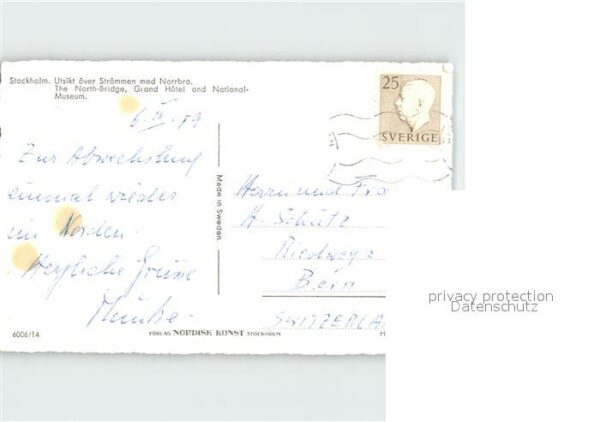 Stockholm. Utsikt över Strömmen med Norrbro.
The North-Bridge, Grand Hôtel and National-
Museum.
25
SVERIGE
Zur Abwechslung
einmal wieder
im Norden.
Herzliche Grüsse
Made in Sweden.
Herrn und Frau
H. Schütz
Riedweg 2
Bern
SWITZERLA
6006/14
FÖRLAG NORDISK KONST STOCKHOLM
privacy protection
Datenschutz